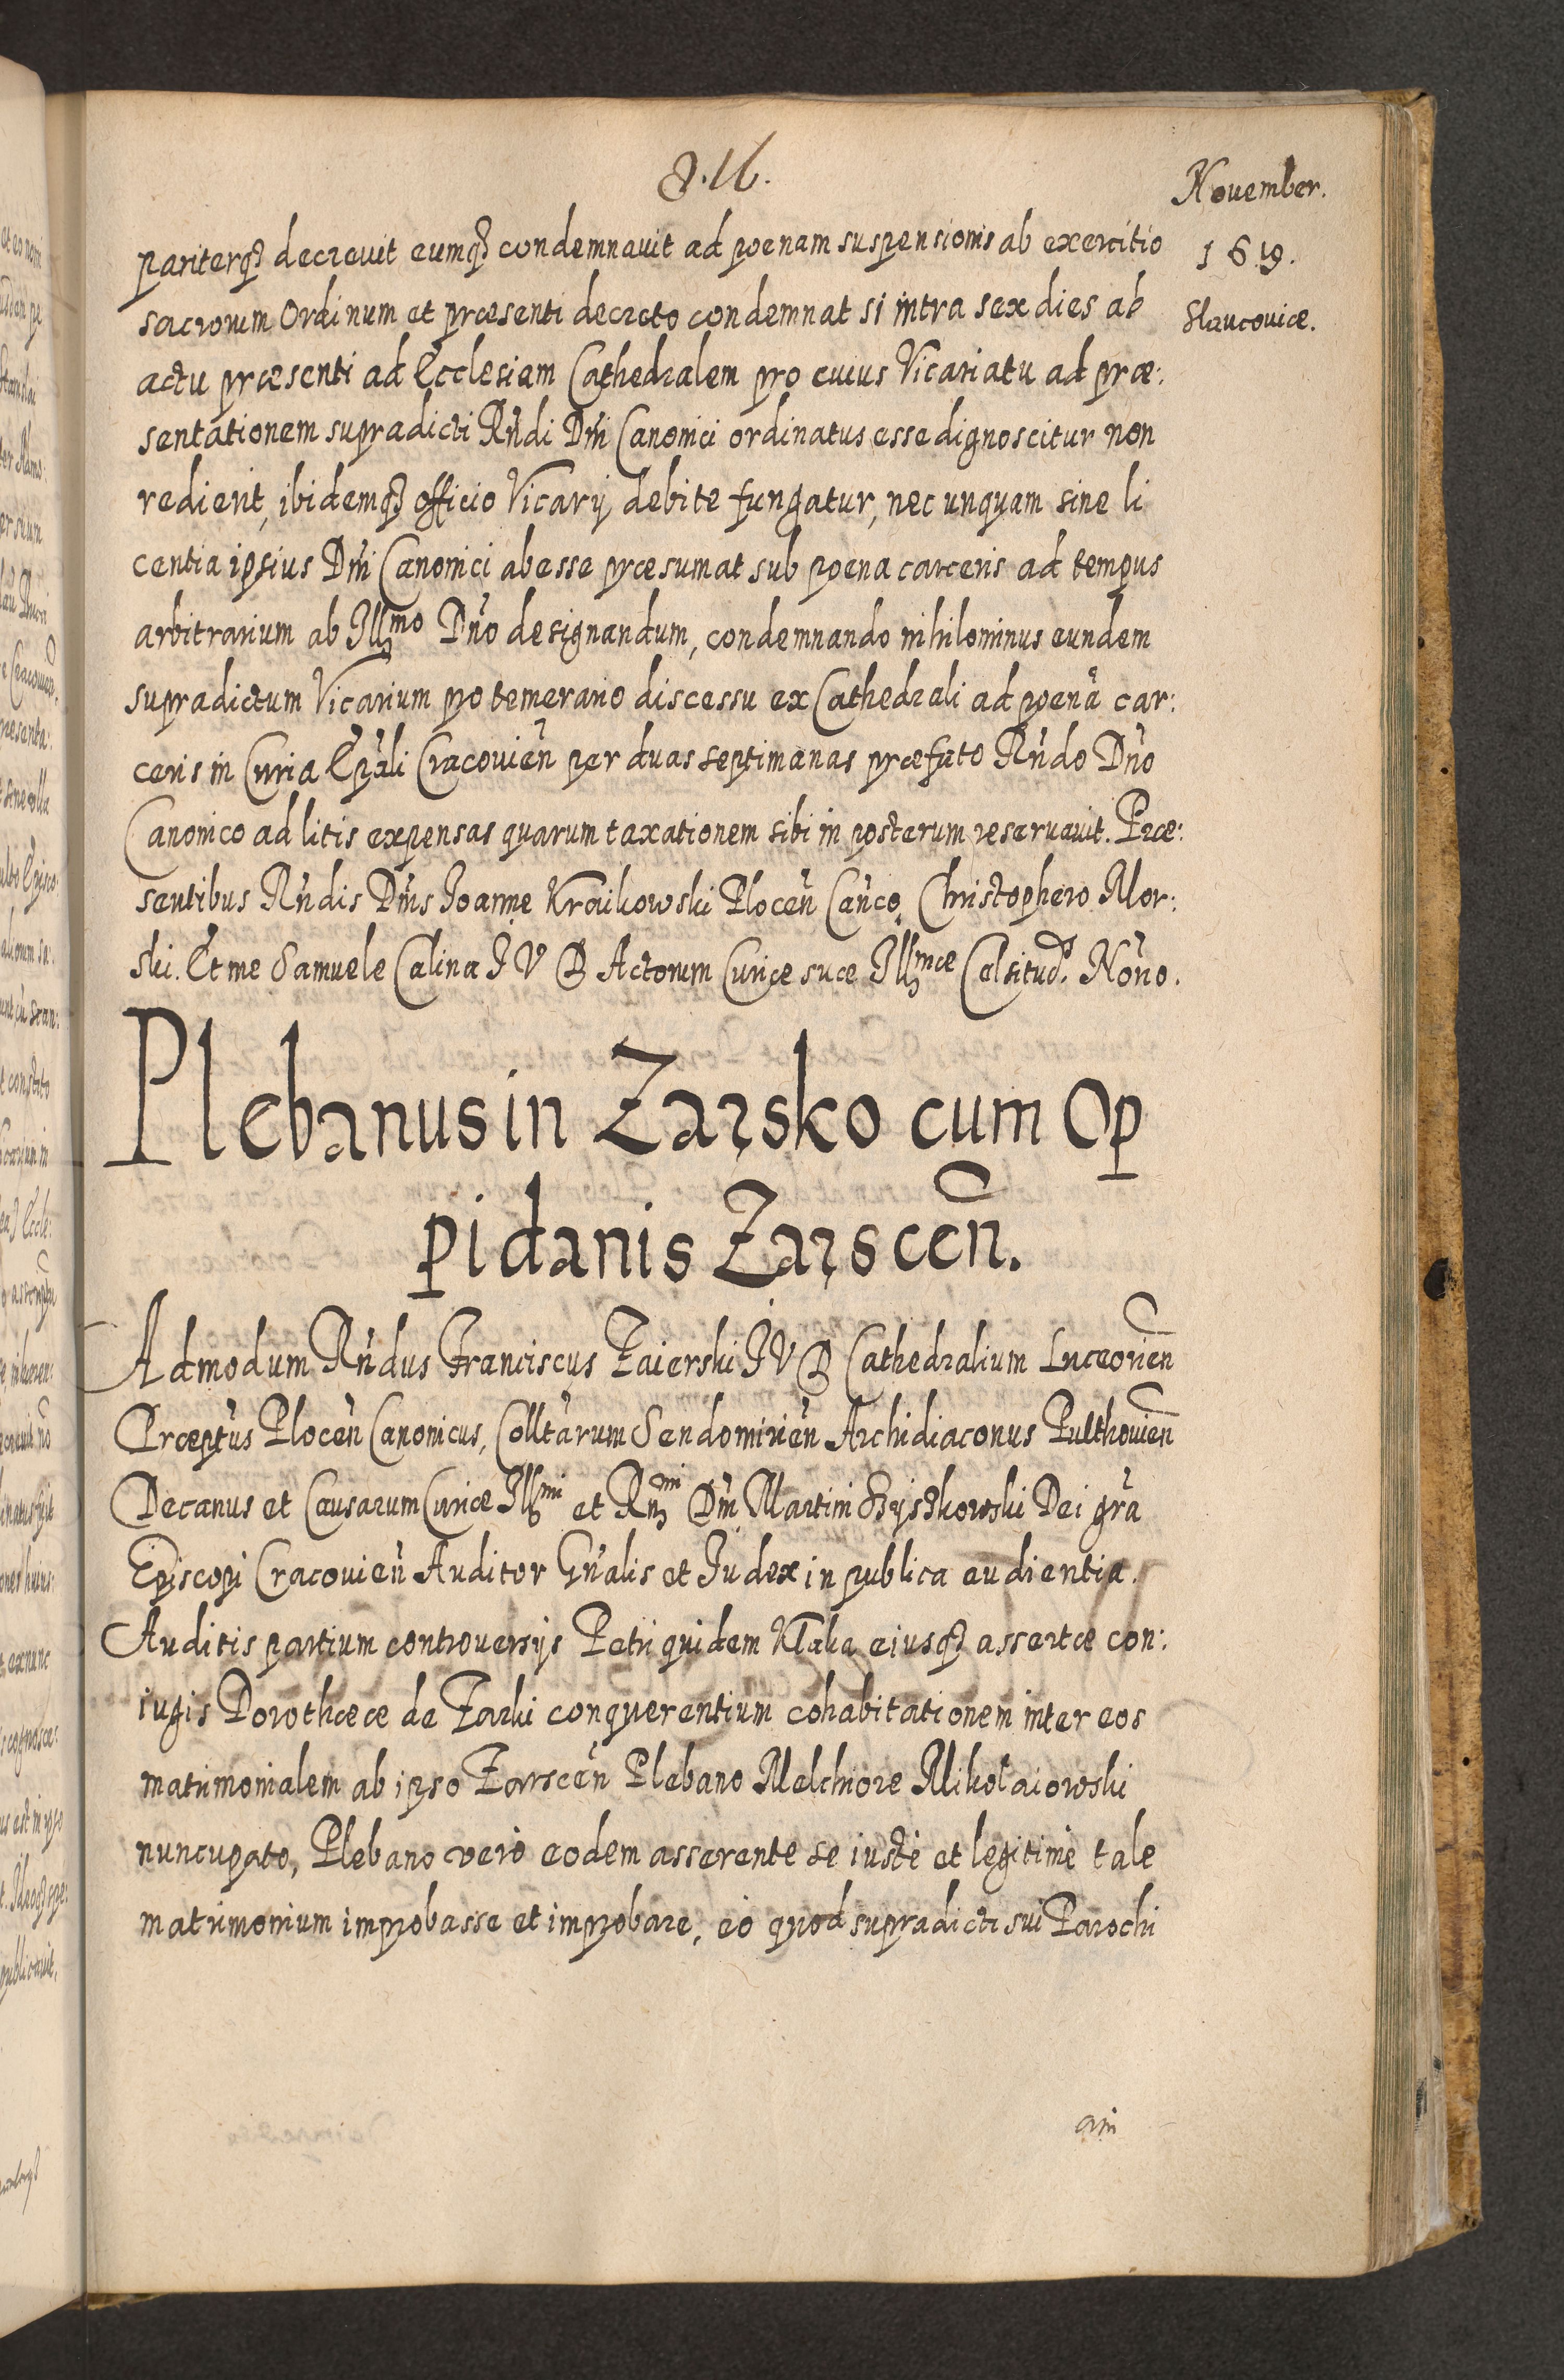 November.
1619.
Slaucouiæ.
pariterq₃ decreuit eumq₃ condemnauit ad poenam suspensionis ab exercitio
sacrorum Ordinum et præsenti decreto condemnat si intra sex dies ab
actu præsenti ad Ecclesiam Cathedralem pro cuius Vicariatu ad præ:
sentationem supradicti Rndi Dni Canonici ordinatus esse dignoscitur non
redierit, ibidemq₃ officio Vicarij debite fungatur, nec unquam sine li
centia ipsius Dni Canonici abesse præsumat sub poena carceris ad tempus
arbitrarium ab Illmo Dno designandum, condemnando nihilominus eundem
supradictum Vicarium pro temerario discessu ex Cathedrali ad poenā car:
ceris in Curia Epāli Cracouien̄ per duas septimanas præfato Rndo Dno
Canonico ad litis expensas quarum taxationem sibi in posterum reseruauit. Præ:
sentibus Rndis Dnis Joanne Kraikowski Plocen̄ Canco, Christophero Mor:
ski. Et me Samuele Calina J V D Actorum Curiæ suæ Illmæ Celsitud. Nōno.
Plebanus in Zarsko cum Op
pidanis Zarsceñ.
Admodum Rndus Franciscus Zaierski J V D Cathedralium Luceorien̄
Præptus Plocen̄ Canonicus, Colltarum Sendomirien̄ Archidiaconus Pulthouien̄
Decanus et Causarum Curiæ Illmi et Rnmi Dni Martini Szyszkowski Dei gra
Episcopi Cracouien̄ Auditor Gnalis et Judex in publica audientia.
Auditis partium controuersijs Petri quidem Kłaka eiusq₃ assertæ con:
iugis Dorothææ de Zarki conquerentium cohabitationem inter eos
matrimonialem ab ipso Zarscen̄ Plebano Melchiore Mikołaiowski
nuncupato, Plebano vero eodem asserente se iustè et legitimè tale
matrimonium improbasse et improbare, eo quod supradicti sui Parochi
ani